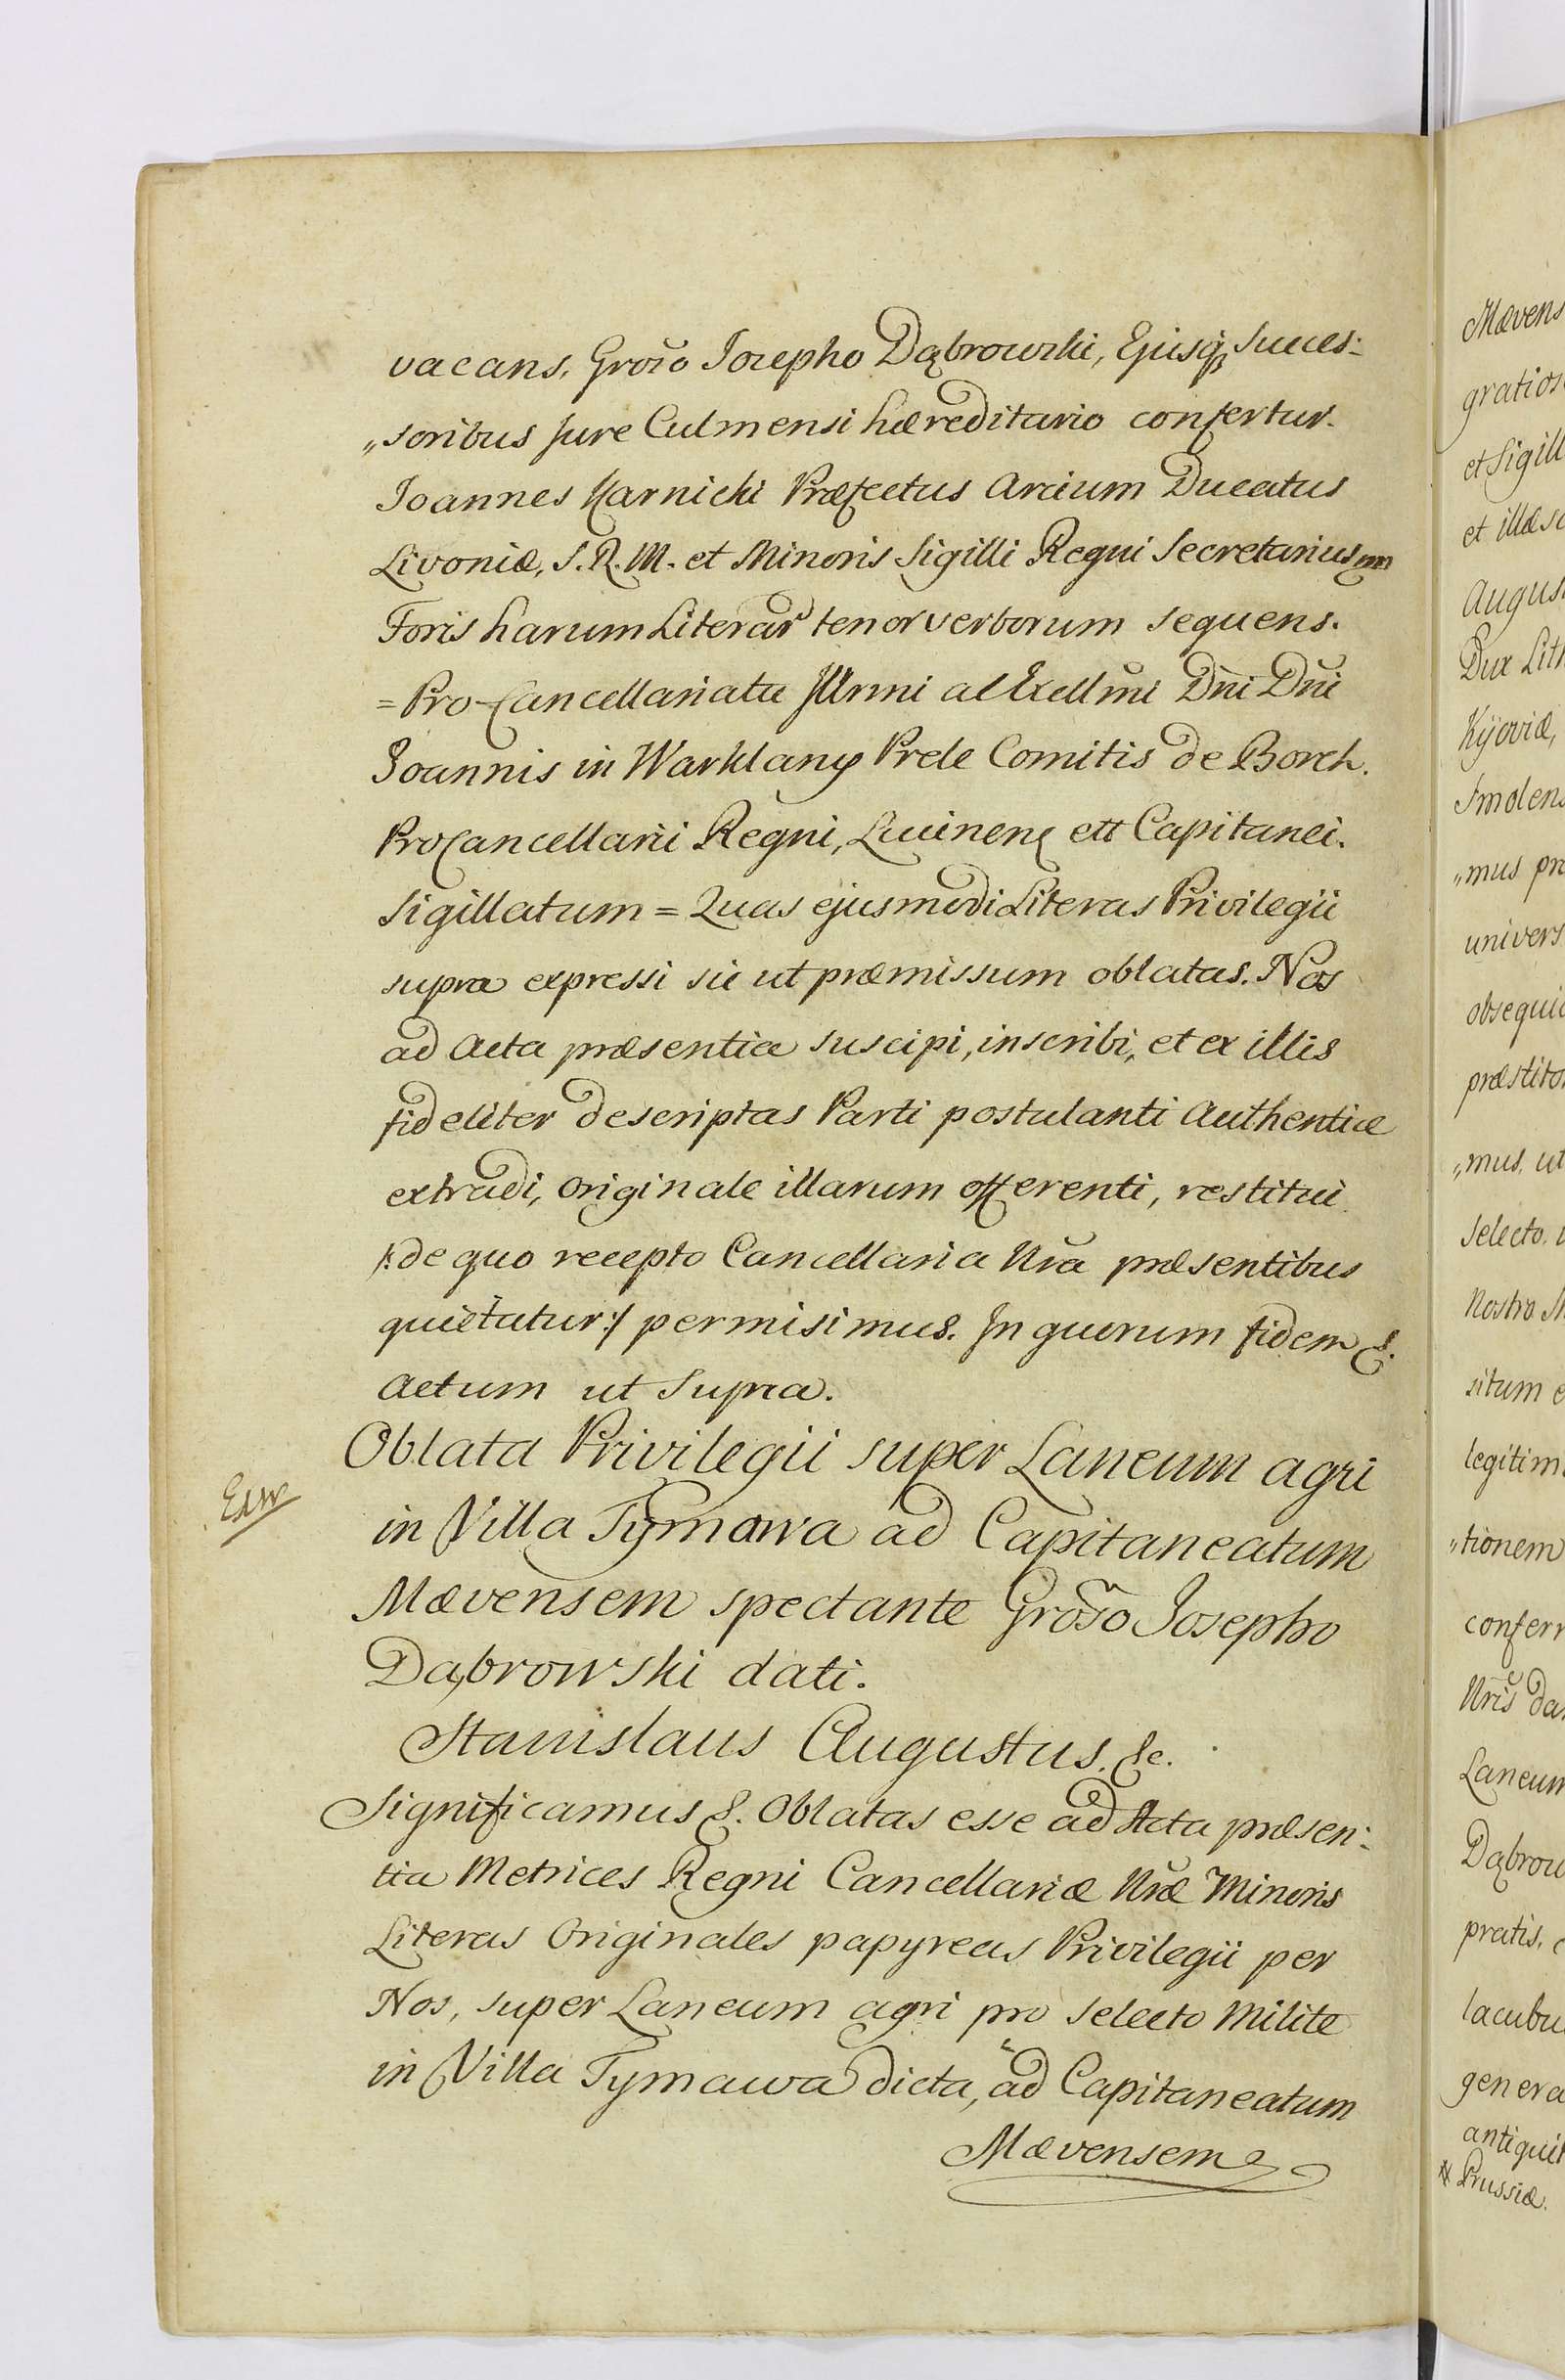 vacans, Groso Josepho Dąbrowski, Ejusq, Succes-
„soribus Jure Culmensi hæreditario confertur.
Joannes Karnicki Præfectus Arcium Ducatus
Livoniæ, S. R. M. et Minoris Sigilli Regni Secretarius mm
Foris harum Literar tenor verborum sequens.
= Pro-Cancellariatu Illrmi ac Excellmi Dni Dni
Joannis in Warklany Prele Comitis de Borch.
ProCancellarii Regni, Lucinen ett Capitanei.
Sigillatum = Quas ejusmodi Literas Privilegii
supra expressi sic ut præmissum oblatas. Nos
ad Acta præsentia suscipi, inscribi, et ex illis
fideliter descriptas Parti postulanti Authenticæ
extradi, Originale illarum offerenti, restitui
/: de quo recepto Cancellaria Nra præsentibus
quietatur :/ permisimus. In quorum fidem &.
Actum ut Supra.
Oblata Privilegii super Laneum agri
in Villa Tymawa ad Capitaneatum
Mævensem spectante Groso Josepho
Dąbrowski dati.
Stanislaus Augustus. &c.
Significamus &. Oblatas esse ad Acta præsen-
tia Metrices Regni Cancellariæ Nræ Minoris
Literas Originales papyreas Privilegii per
Nos, super Laneum agri pro Selecto Milite
in Villa Tymawa dicta, ad Capitaneatum
Mævensem
Mævens
gratios
et Sigill
et illæs
Augus
Dux Lith
Kijoviæ,
Smolens
„mus pr
univers
obsequi
præstito
„mus, ut
Selecto,
Nostro
situm e
legitim
„tionem
conferr
Nris da
Laneum
Dąbrow
pratis,
lacubu
genera
antiquit
# Prussiæ.